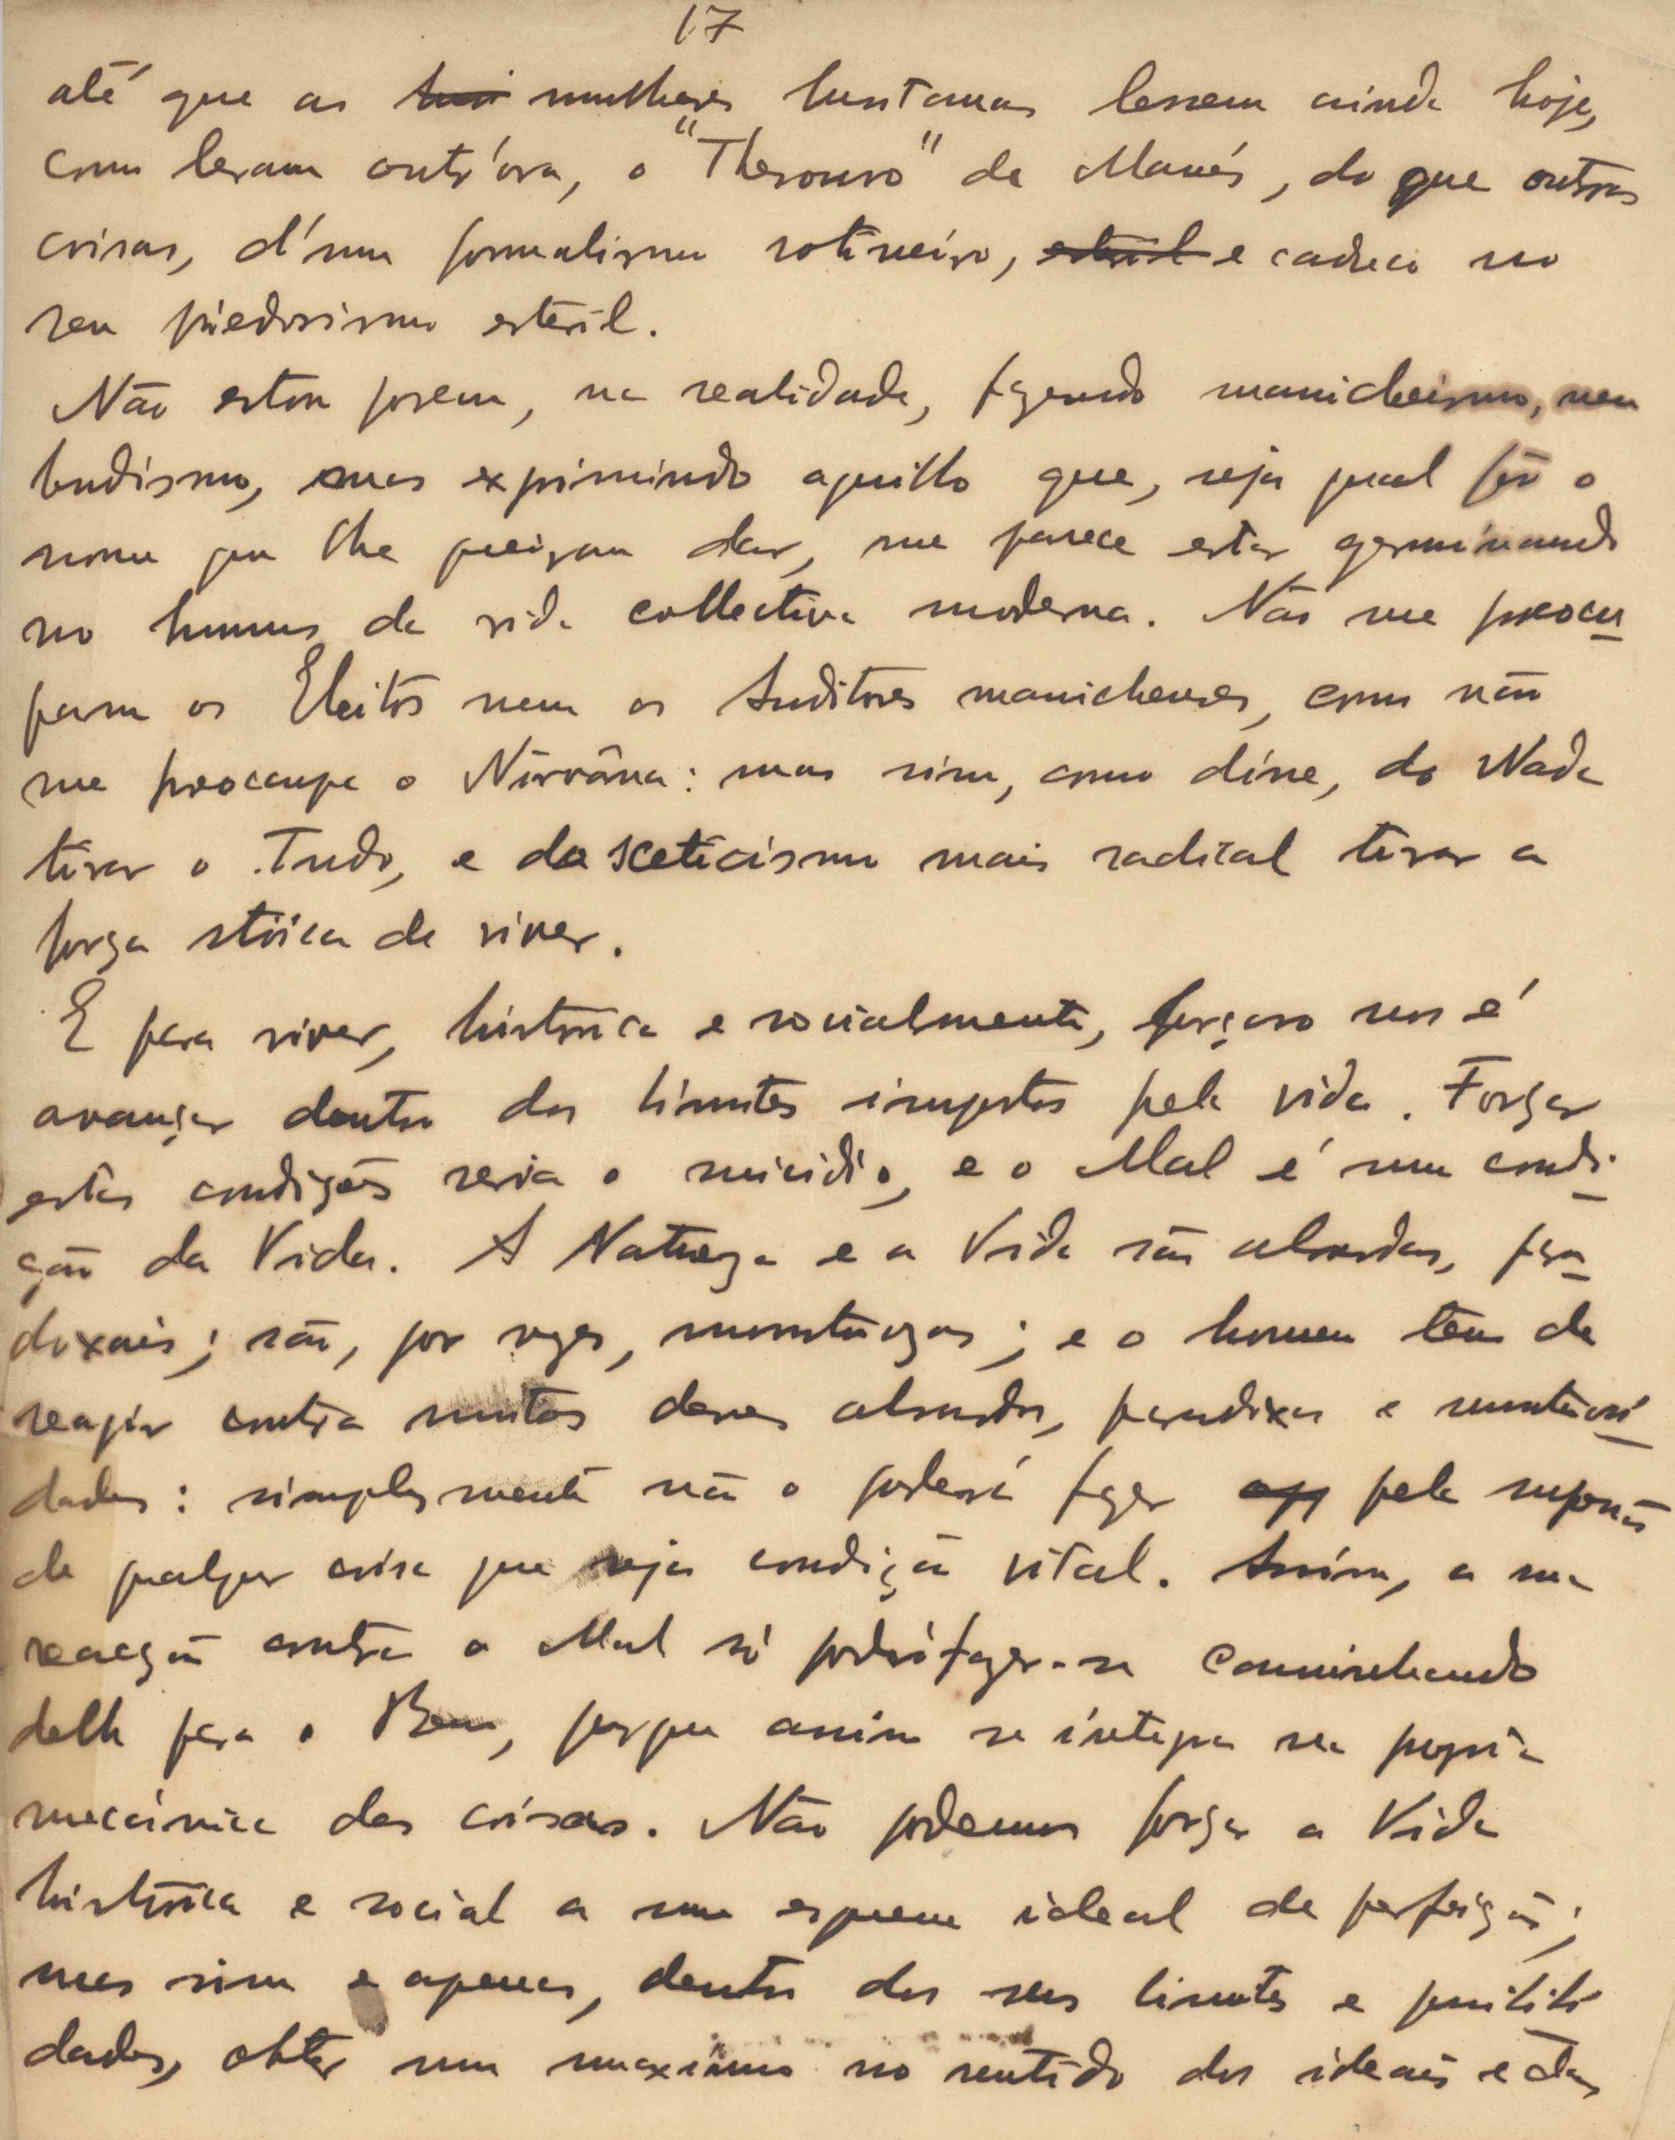 17
até que as mulheres lusitanas lessem ainda hoje,
como leram outr'ora, o "Thesouro" de Manés, do que outras
coisas, d'um formalismo rotineiro, e caduco no
seu piedosismo esteril.
Não estou porem, na realidade, fazendo manicheismo, nem
budismo, mas exprimindo aquillo que, seja qual fôr o
nome que lhe queiram dar, me parece estar germinando
no humus da vida collectiva moderna. Não me preocu-
pam os Eleitos nem os Auditores manicheuses, como não
me preocupa o Nirvâna: mas sim, como disse, do Nada
tirar o Tudo, e do sceticismo mais radical tirar a
força stóica de viver.
E para viver, historica e socialmente, forçoso nos é
avançar dentro dos limites impostos pela vida. Forçar
estas condições seria o suicidio, e o Mal é uma condi-
ção da Vida. A Natureza e a Vida são absurdas, para-
doxais; são, por vezes, monstruozas; e o homem tem de
reagir contra muitos desses absurdos, paradoxos e monstruosi-
dades: simplesmente não o poderá fazer pela supressão
de qualquer coisa que seja condição vital. Assim, a sua
reacção contra o Mal só poderá fazer-se caminhando
delle para o Bem, porque assim se integra na propria
mecánica das coisas. Não podemos forçar a Vida
histórica e social a um esquema ideal de perfeição;
mas sim e apenas, dentro dos seus limites e possibili-
dades, obter um maximo no sentido dos ideais e das